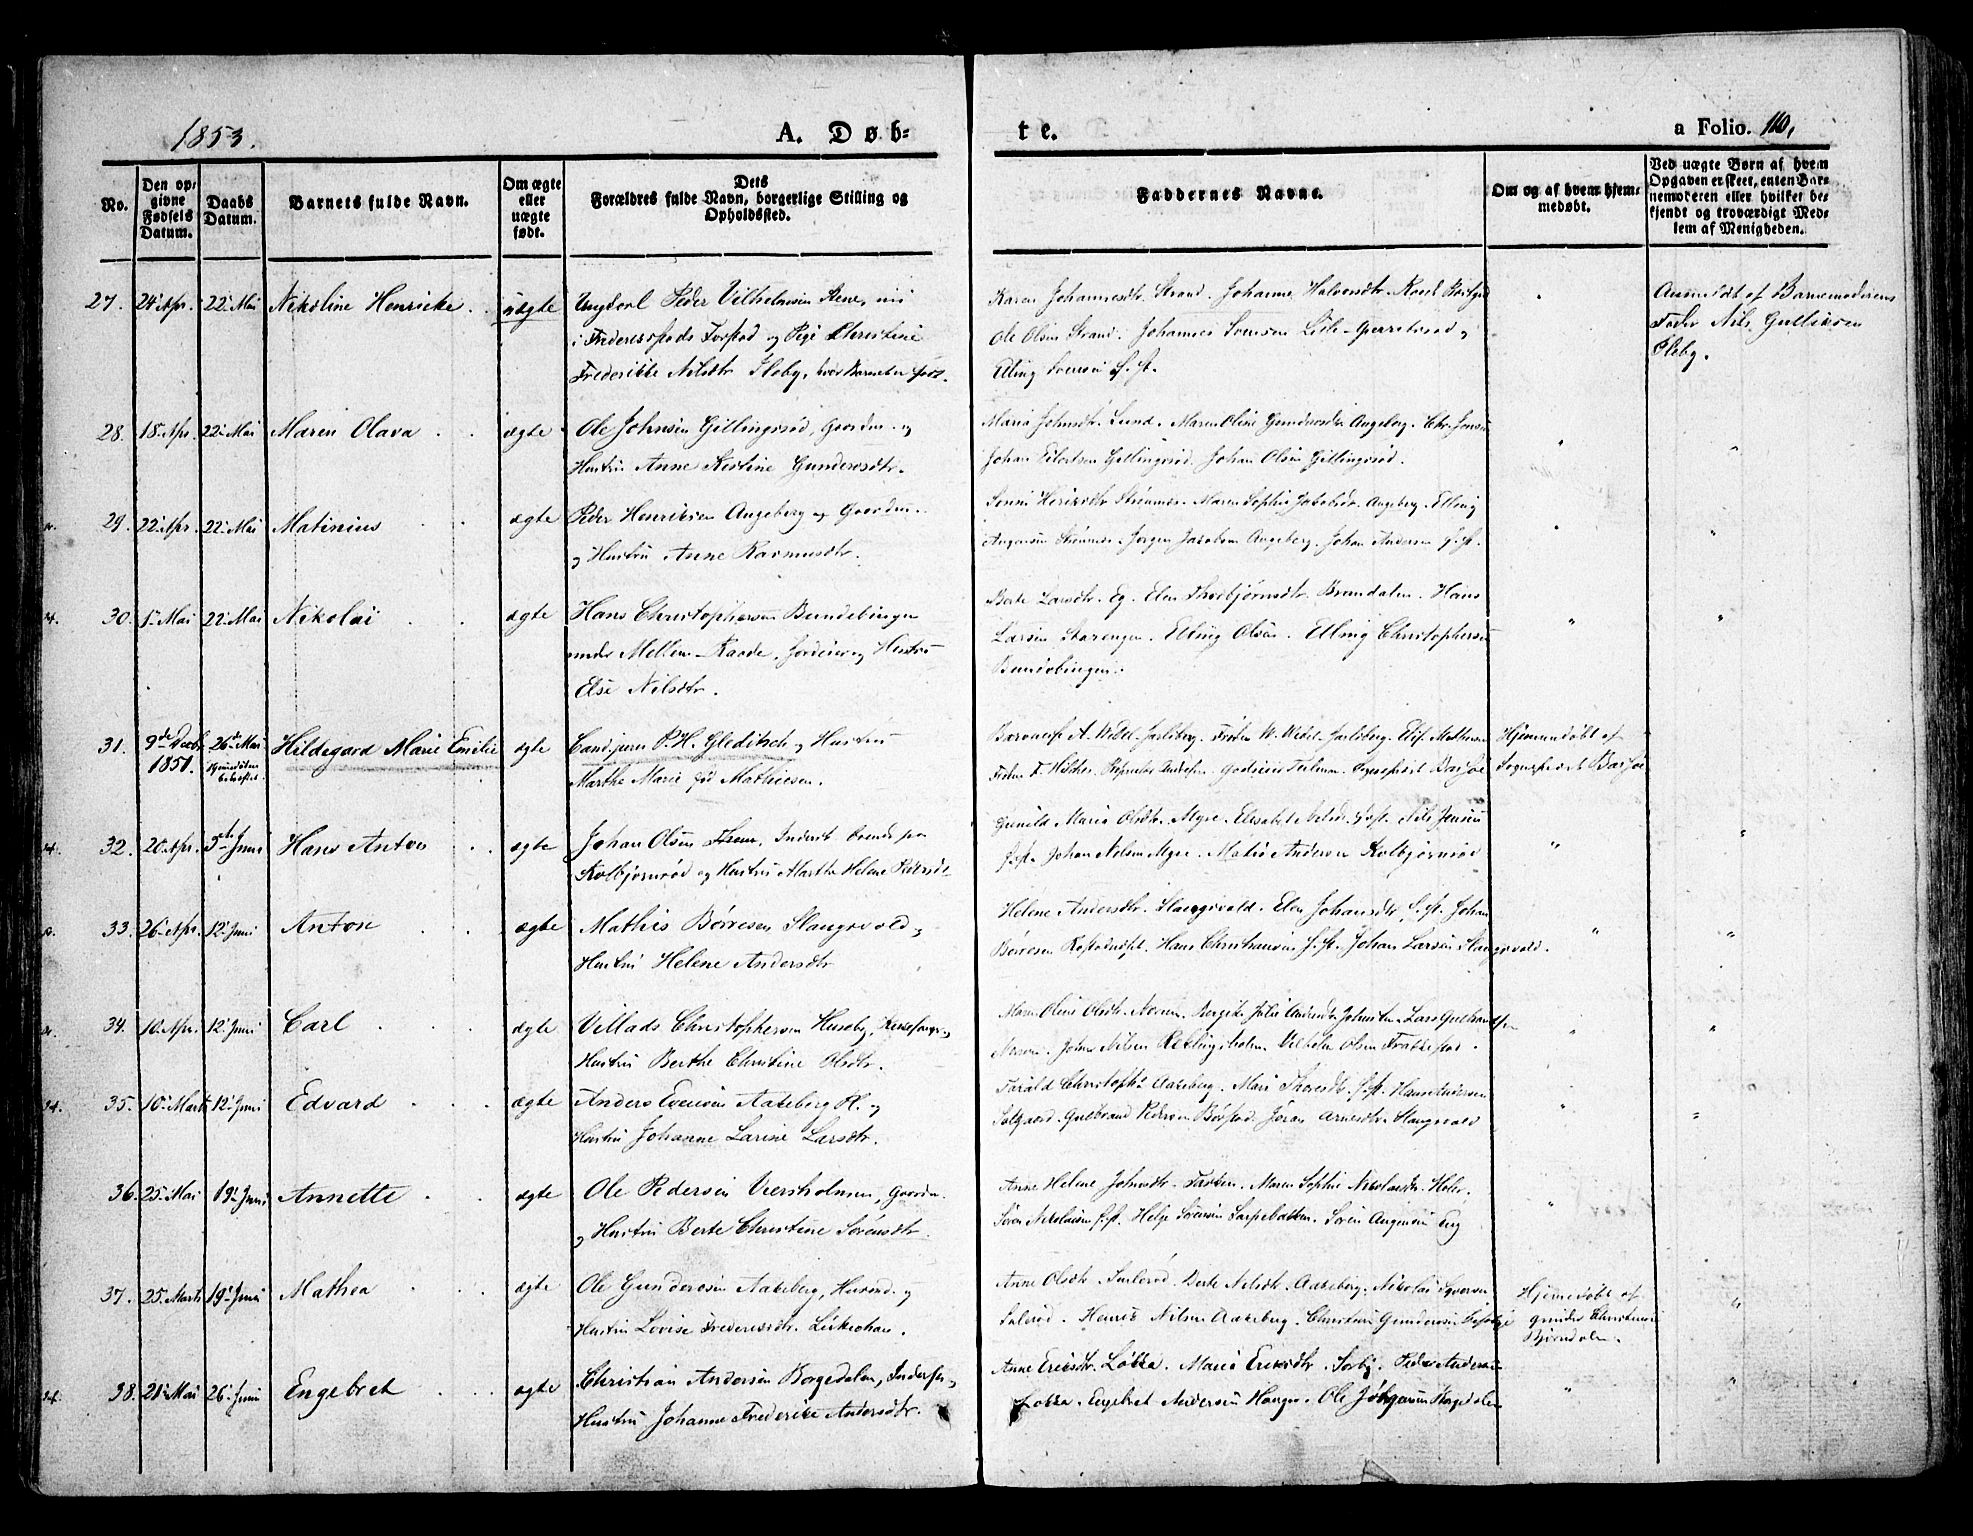 1853.
A. Døb-
te.
a Folio. 110,
No.
Den op-
givne
Fødsels
Datum.
Daabs
Datum.
Barnets fulde Navn.
Om ægte
eller
uægte
født.
Dets
Forældres fulde Navn, borgerlige Stilling og
Opholdssted.
Faddernes Navne.
Om og af hvem hjem-
medøbt.
Ved uægte Børn af hvem
Opgaven er skeet, enten Bar-
nemoderen eller hvilket be-
kjendt og troværdigt Med-
lem af Menigheden.
27. 24 Apr. 22 Mai Nikoline Henricke uægte Ungkarl Peder Vilhelmsen
i Fredriksstads Forstad og Pige Christine
Frederikke Nilsdtr Fleby, hvor Barnet er født.
Karen Johannesdtr. Strand. Johanne Halvorsdtr.
Ole Olsen Strand. Johannes Svensen Lille-
Elling Svensen S. st.
Anmeldt af Barnemoderens
Fader Nils Gulliksen
Fleby.
28. 18 Apr. 22 Mai Maren Olava ægte Ole Johnsen Gillingsrød, Gaardm. og
Hustru Anne Kirstine Gundersdtr.
Maria Johnsdtr. Lund. Maren Oline Gundersdtr Augeberg. Chr. Jensen
Johan Eilertsen Gillingsrød. Johan Olsen Gillingsrød.
29. 22 Apr. 22 Mai Matinius ægte Peder Henriksen Augeberg og Gaardm.
og Hustru Anne Rasmusdtr.
Maren Sophie Jakobsdtr. Augeberg. Elling
Jørgen Jacobsen Augeberg. Johan Andersen S. st.
30. 1 Mai 22 Mai Nikolai ægte Hans Christophersen Bundebingen
under Mellem-Raade, Inderst og Hustru
Else Nilsdtr.
Berte Larsdtr. Eg. Elen Thorbjørnsdtr. Brundalen. Hans
Larsen Starengen. Elling Olsen. Elling Christophersen
Bundebingen.
31. 9de Decbr. 1851. 26de Mai Hjemmedøben bekræftet. Hildegard Marie Emilie ægte Cand. juris P. H. Gleditsch og Hustru
Marthe Marie fød Mathiesen.
Baronesse A. Wedel-Jarlsberg. Frøken W. Wedel-Jarlsberg. Elise Mathiesen
Sognepræst Barsøe
Hjemmedøbt af
Sognepræst Barsøe
32. 20 Apr. 5te Juni Hans Anton ægte Johan Olsen Inderst boende paa
Kolbjørnsrød og Hustru Marthe Helene Pedersdtr.
Gunild Maria Olsdtr. Myre. Elisabet S. st. Nils Jensen
S. st. Johan Nilsen Myre. Mathis Andersen Kolbjørnsrød
33. 26 Apr. 12 Juni Anton ægte Mathis Børresen Slangsvold og
Hustru Helene Andersdtr
Helene Andersdtr. Slangsvold. Elen Johansdtr S. st. Johan
Børresen Hans Christiansen S. st. Johan Larsen Slangsvold.
34. 10 Apr. 12 Juni Carl ægte Villads Christophersen Huseby,
Hustru Berthe Christine Olsdtr.
Maren Oline Olsdtr. Lars Gulbrandsen
Johan Nilsen Rellingsholm. Vilhelm Olsen Frakkestad.
35. 10 Marts 12 Juni Edvard ægte Anders Evensen Aakeberg
Hustru Johanne Larine Larsdtr.
Aakeberg. Mari Thoresdtr. S. st. Hans Andersen
Solgaard. Gulbrand Pedersen Børstad. Jøran Arnesdtr Slangsvold
36. 25 Mai 19 Juni Annette ægte Ole Pedersen Viersholmen, Gaardm.
og Hustru Berte Christine Sørensdtr.
Anne Helene Johnsdtr. Maren Sophie Nikolaisdtr. Holer.
Søren Nikolaisen S. st. Helge Sørensen Sarpebakken. Søren Augensen Eeg
37. 25 Marts 19 Juni Mathea ægte Ole Gundersen Aakeberg, Husmd. og
Hustru Lovise Fredriksdtr.
Anne Olsdtr. Berte Nilsdtr. Aakeberg. Nikolai Syversen
Henrik Nilsen Aakeberg. Christian Gundersen
Hjemmedøbt af
Christensen
Bjørndalen.
38. 21 Mai 26 Juni Engebret ægte Christian Andersen Borgedalen,
Hustru Johanne Frederikke Andersdtr.
Anne Eriksdtr. Løkka. Maria Eriksdtr. Peder Andersen
Løkka. Engebret Andersen Haugen. Ole Jørgensen Borgedalen